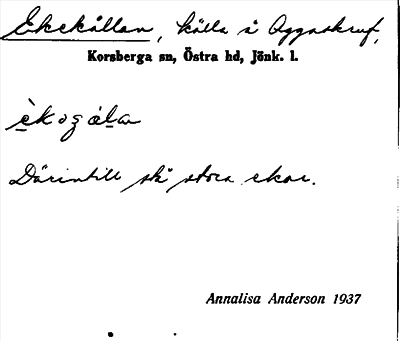 Ekekällan, källa å Aggaskruv,
Korsberga sn, Östra hd, Jönk. l.
Därintill stå stora ekar.
Annalisa Anderson 1937